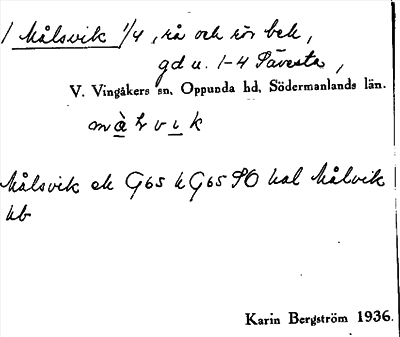 1 Målsvik 1/4, rå och rör bek,
gd u. 1-4 Sävesta,
V. Vingåkers sn, Oppunda hd, Södermanlands län.
Målsvik ek G65 k G65 SO kal Målvik
kb
Karin Bergström 1936.